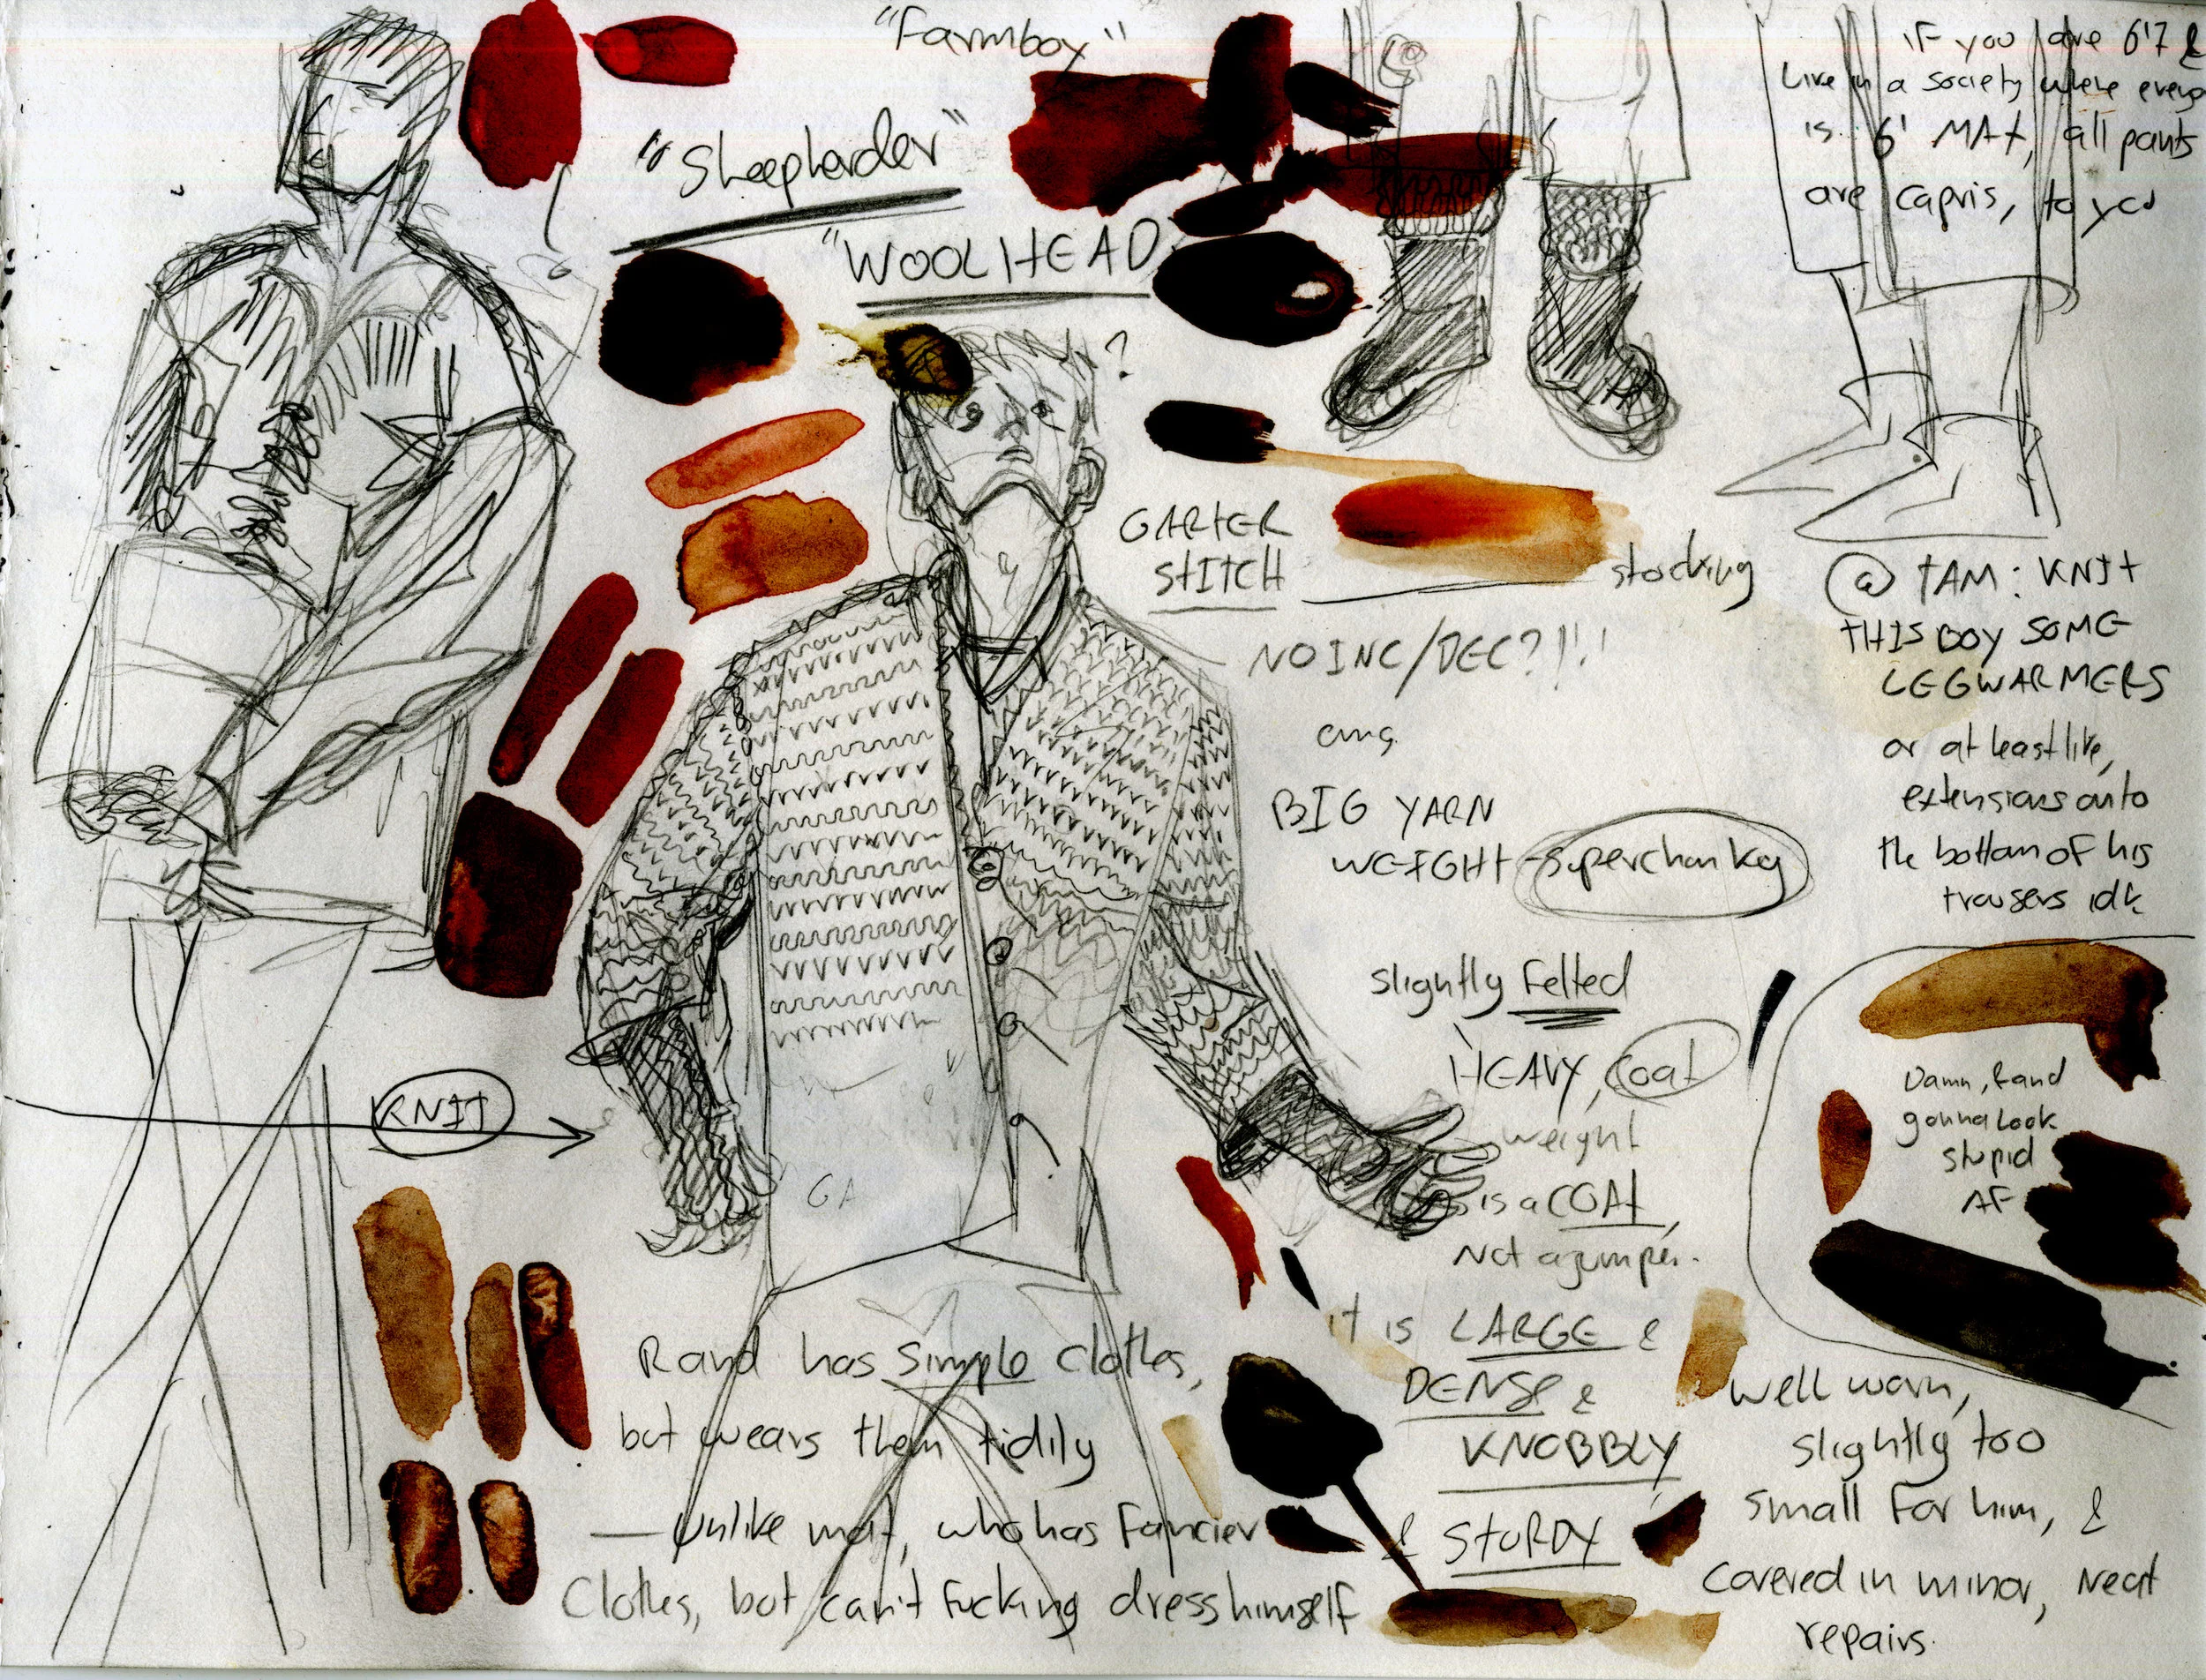 "Farmboy"
"Sheepherder"
"WOOLHEAD
?
IF you are 6'7 &
Live in a society where
is 6' MAX, all pants
are capris, to you
GARTER
STITCH
stocking
NO INC/DEC?!!!
BIG YARN
WEIGHT - superchunky
slightly Felted
HEAVY, coat
weight
is a COAT,
Not a jumper.
it is LARGE &
DENSE &
KNOBBLY
& STURDY
@ TAM: KNIT
THIS BOY SOME
LEGWARMERS
or at least like,
extensions onto
the bottom of his
trousers idk
Damn, Rand
gonna look
stupid
AF
well worn,
slightly too
small For him, &
covered in minor, Neat
repairs.
KNIT
GA
Rand has simple clothes,
but wears them tidily
— Unlike mat, who has Fancier
Clothes, but can't Fucking dress himself